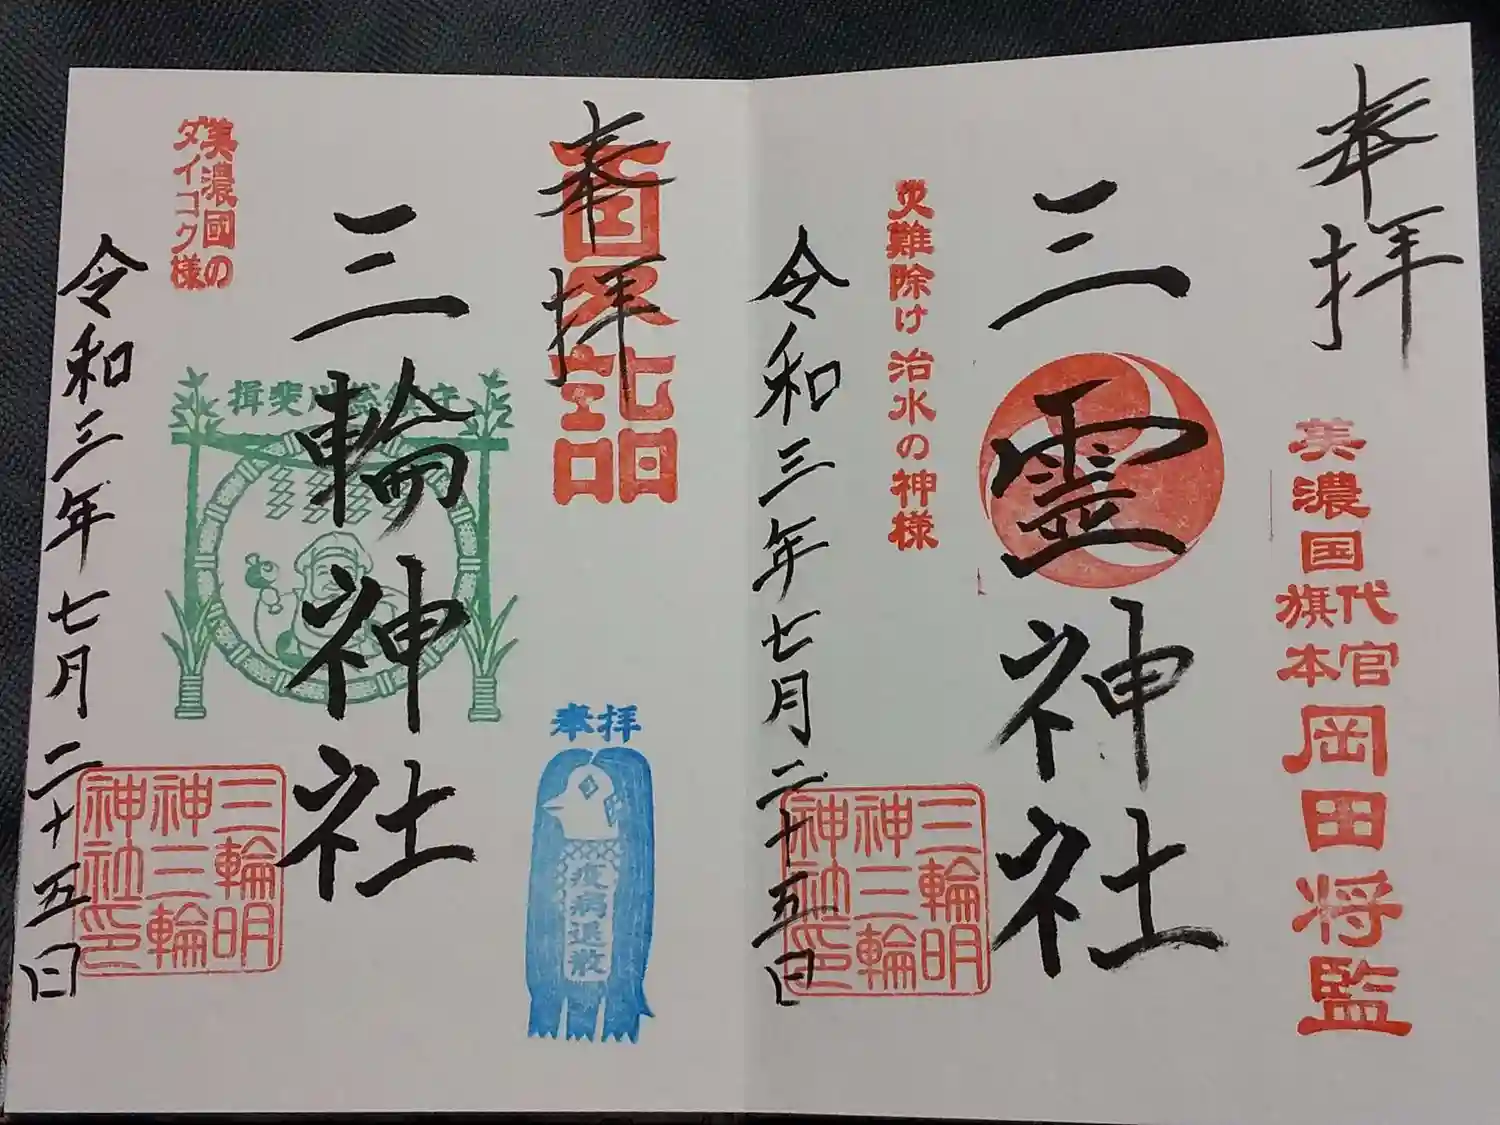 奉拝
美濃国
代官
旗本
岡田将監
三霊神社
災難除け 治水の神様
三輪明
神三輪
神社印
令和三年七月二十五日
奉拝
夏詣
奉拝
疫病退散
三輪神社
揖斐川総鎮守
美濃國の
ダイコク様
三輪明
神三輪
神社印
令和三年七月二十五日